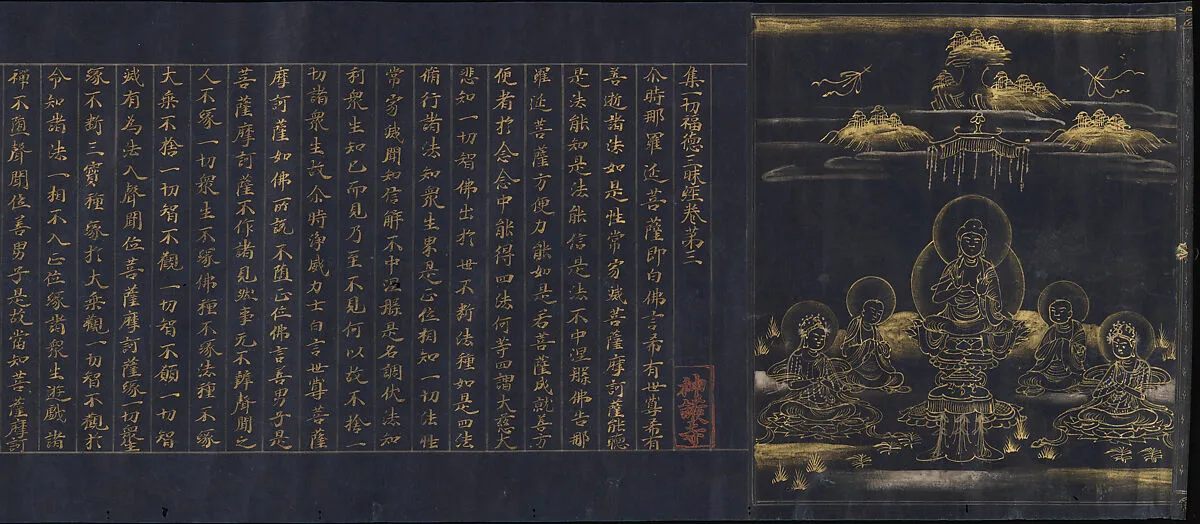 集一切福德三昧経巻第三
尒時那羅延菩薩即白佛言希有世尊希有
善逝諸法如是性常寂滅菩薩摩訶薩能聴
是法能知是法能信是法不中涅槃佛告那
羅延菩薩方便力能如是若菩薩成就善方
便者於念念中能得四法何等四謂大慈大
悲如一切智佛出於世不断法種如是四法
脩行諸法知衆生界是正位相知一切法性
常寂滅聞知信解不中涅槃是名調伏法知
利衆生知已而見乃至不見何以故不捨一
切諸衆生故尒時浄威力士白言世尊菩薩
摩訶薩如佛所説不堕正位佛言善男子是
菩薩摩訶薩不作諸見然事元不辞聲聞之
人不縁一切衆生不縁佛種不縁法種不縁
大乗不捨一切智不觀一切智不願一切智
滅有為法入聲聞位菩薩摩訶薩縁一切衆生
縁不断三寶種縁於大乗觀一切智不觀於
今知諸法一相不入正位縁諸衆生遊戯諸
禅不堕聲聞位善男子是故當知菩薩摩訶
神護寺